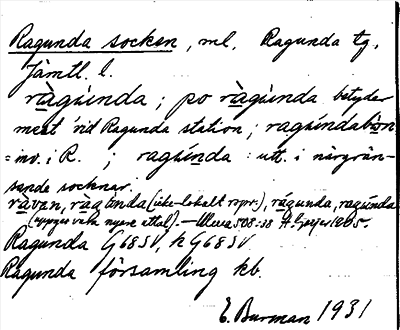 Ragunda socken, ml. Ragunda tg,
Jämtl. l.
ràgúnda; po ràgúnda betyder
mest vid Ragunda station; ragúndabon
= inv. i R.; ragúnda: utt. i närgrän-
sande socknar.
ràven, ragùnda (icke-lokalt rspr.), rágunda, ragúnda
(uppges vara nyare uttal). — 508:33 1905.
Ragunda G68SV, h G68SV
Ragunda församling kb.
E. Burman 1931